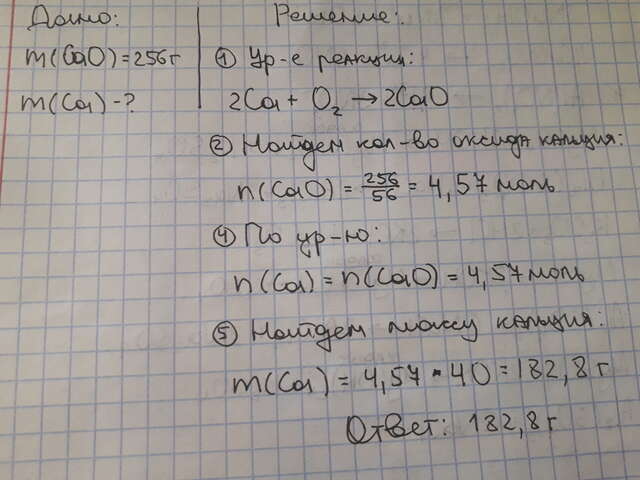 Дано:
m(CaO)=256г
m(Ca)-?
Решение:
① Ур-е реакции:
2Ca + O₂ → 2CaO
② Найдем кол-во оксида кальция:
n(CaO) = 256/56 = 4,57 моль
④ По ур-ю:
n(Ca) = n(CaO) = 4,57 моль
⑤ Найдем массу кальция:
m(Ca) = 4,57 * 40 = 182,8 г
Ответ: 182,8 г